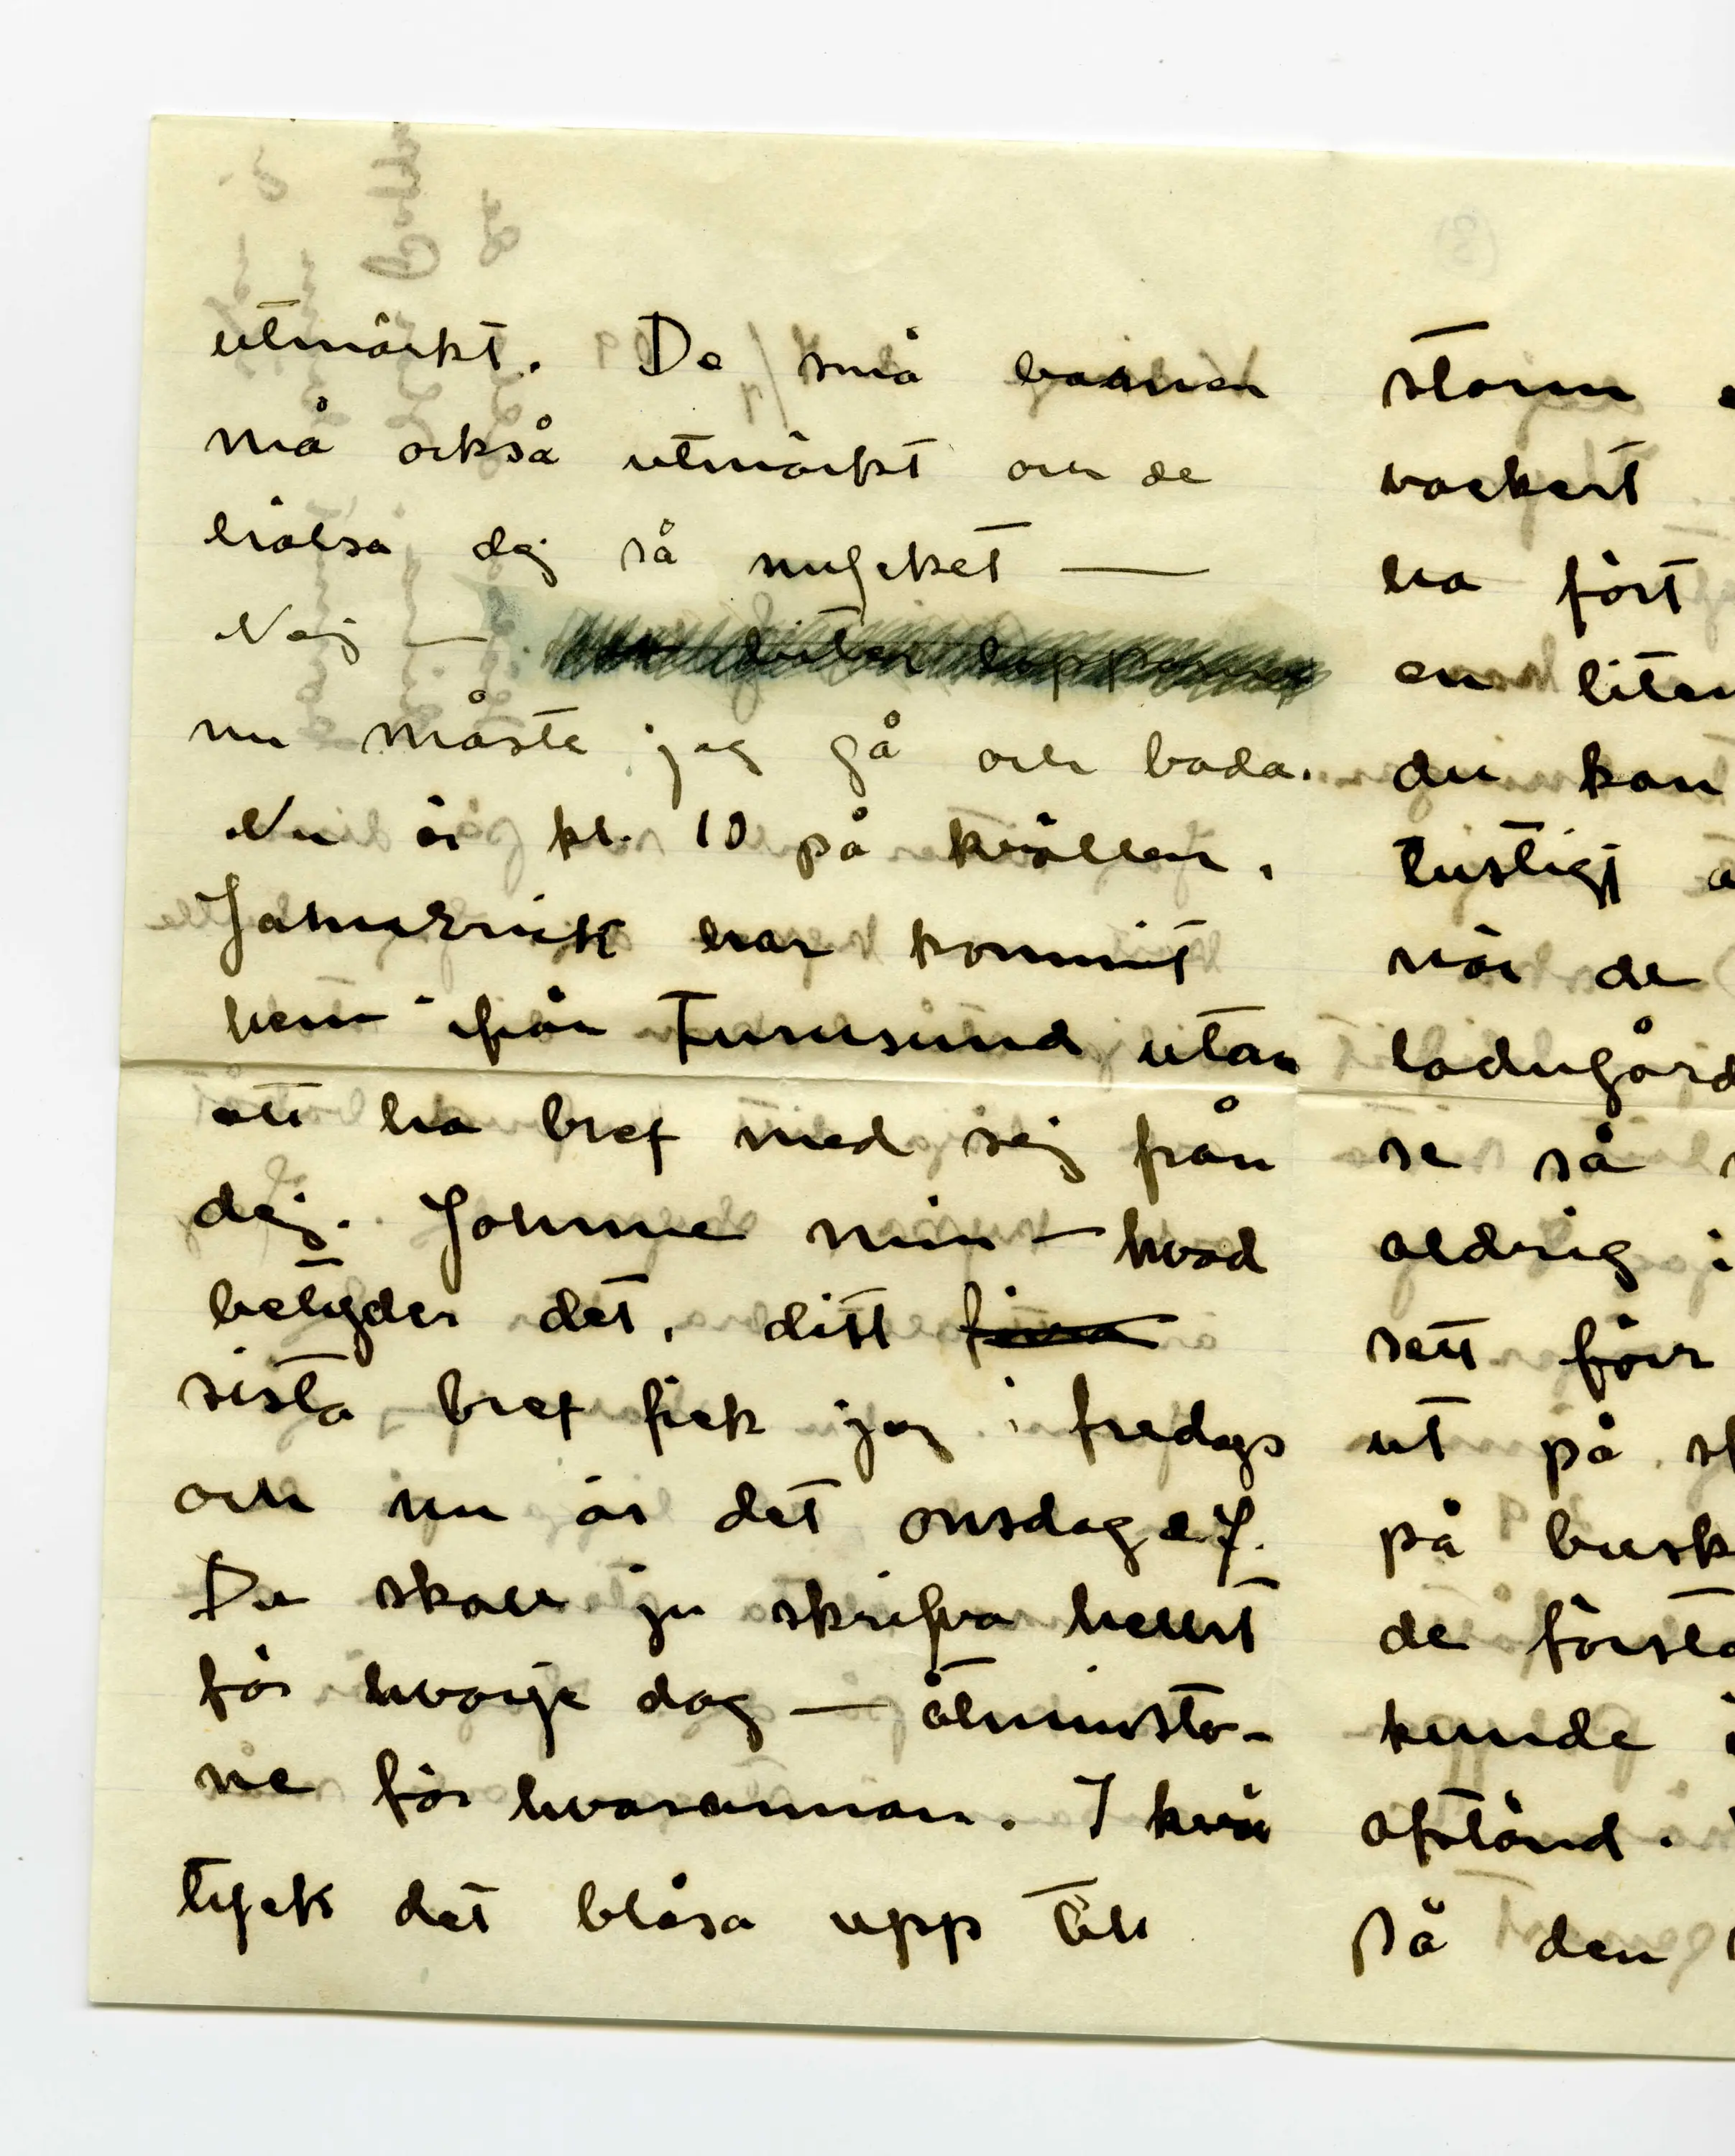 utmärkt. De små barnen
må också utmärkt och de
hälsa dej så mycket —
Nej —
nu måste jag gå och bada.
Nu är kl. 10 på kvällen.
har kommit
hem ifrån Furusund utan
att ha bref med sej från
dej. Jonne min — hvad
betyder det, ditt
sista bref fick jag i fredags
och nu är det onsdag e.f.
Du skall ju skrifva helst
för hvarje dag — åtminsto-
ne för hvarannan. I kväll
tyck det blåsa upp till
storm
vackert
ha fört
en liten
du kan
lustigt
när de
ladugård
se så
aldrig i
sett förr
ut på
på busk
de första
kunde
afstånd.
På den